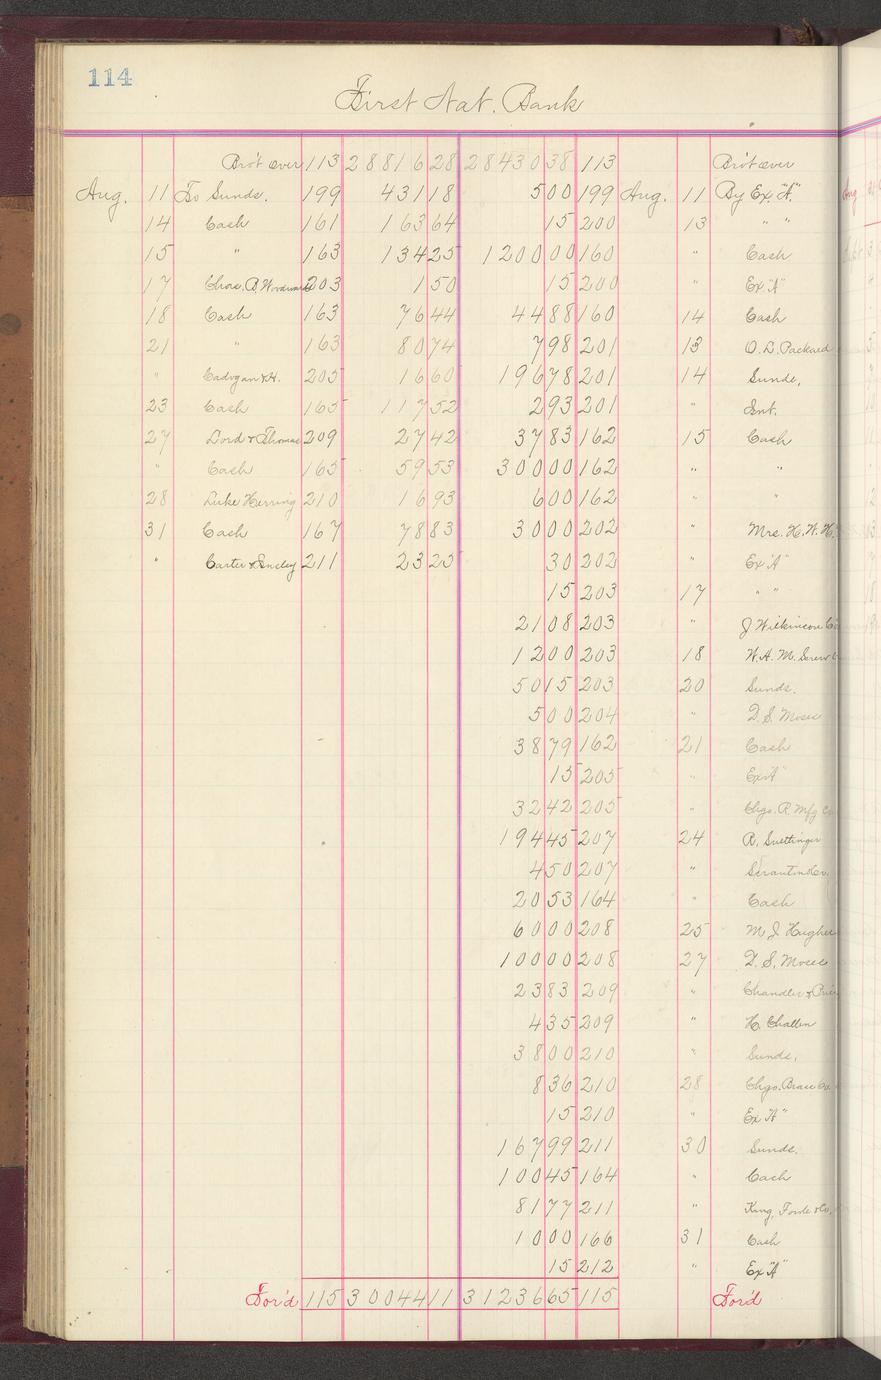 114
First Nat. Bank
Bro't over 113 28816 28 28430 38 113 Bro't over
Aug. 11 To Sunds. 199 431 18 5 00 199 Aug. 11 By Ex. "A"
14 Cash 161 163 64 15 200 13 " "
15 " 163 134 25 1200 00 160 " Cash
17 Chas. A. Woodward 203 1 50 15 200 " Ex "A"
18 Cash 163 76 44 44 88 160 14 Cash
21 " 163 80 74 7 98 201 13 O. L. Packard
" Cadogan & H. 205 16 60 196 78 201 14 Sunds,
23 Cash 165 117 52 2 93 201 " Int.
27 Lord & Thomas 209 27 42 37 83 162 15 Cash
" Cash 165 59 53 300 00 162 " "
28 Luke Herring 210 16 93 6 00 162 " "
31 Cash 167 78 83 30 00 202 " Mrs. H. W. H.
" Carter & Insley 211 23 25 30 202 " Ex "A"
15 203 17 " "
21 08 203 " J Wilkinson Co
12 00 203 18 W. A. M. Screw
50 15 203 20 Sunds.
5 00 204 " D. S. Moses
38 79 162 21 Cash
15 205 " Ex "A"
32 42 205 " Chgo. R. Mfg Co
194 45 207 24 A. Suettinger
4 50 207 "
20 53 164 " Cash
60 00 208 25 M. J. Hughes
100 00 208 27 D. S. Moses
23 83 209 " Chandler & Price
4 35 209 " H. Challen
38 00 210 " Sunds,
8 36 210 28 Chgo. Brass Co.
15 210 " Ex "A"
167 99 211 30 Sunds.
100 45 164 " Cash
81 77 211 " King, Foote & Co.
10 00 166 31 Cash
15 212 " Ex "A"
For'd 115 30044 11 31236 65 115 For'd